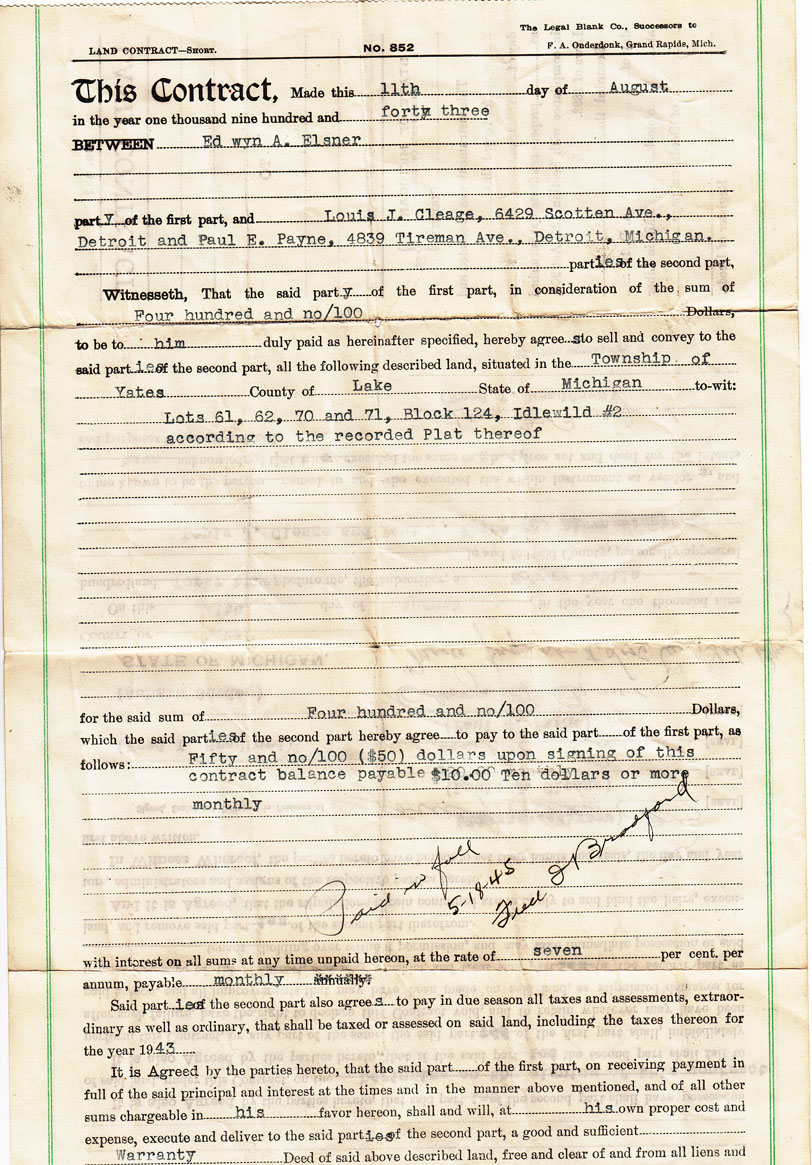 The Legal Blank Co., Successors to
LAND CONTRACT—SHORT. No. 852 F. A. Onderdonk, Grand Rapids, Mich.
This Contract, Made this 11th day of August
in the year one thousand nine hundred and forty three
BETWEEN Ed wyn A. Elsner
party of the first part, and Louis J. Cleage, 6429 Scotten Ave.,
Detroit and Paul E. Payne, 4839 Tireman Ave., Detroit, Michigan.
parties of the second part,
Witnesseth, That the said party of the first part, in consideration of the sum of
Four hundred and no/100 Dollars,
to be to him duly paid as hereinafter specified, hereby agrees to sell and convey to the
said parties of the second part, all the following described land, situated in the Township of
Yates County of Lake State of Michigan to-wit:
Lots 61, 62, 70 and 71, Block 124, Idlewild #2
according to the recorded Plat thereof
for the said sum of Four hundred and no/100 Dollars,
which the said parties of the second part hereby agree to pay to the said part of the first part, as
follows: Fifty and no/100 ($50) dollars upon signing of this
contract balance payable $10.00 Ten dollars or more
monthly
Paid in full
5-18-45
Fred J Bradford
with interest on all sums at any time unpaid hereon, at the rate of seven per cent. per
annum, payable monthly annually.
Said parties of the second part also agrees to pay in due season all taxes and assessments, extraor-
dinary as well as ordinary, that shall be taxed or assessed on said land, including the taxes thereon for
the year 1943
It is Agreed by the parties hereto, that the said part of the first part, on receiving payment in
full of the said principal and interest at the times and in the manner above mentioned, and of all other
sums chargeable in his favor hereon, shall and will, at his own proper cost and
expense, execute and deliver to the said parties of the second part, a good and sufficient
Warranty Deed of said above described land, free and clear of and from all liens and